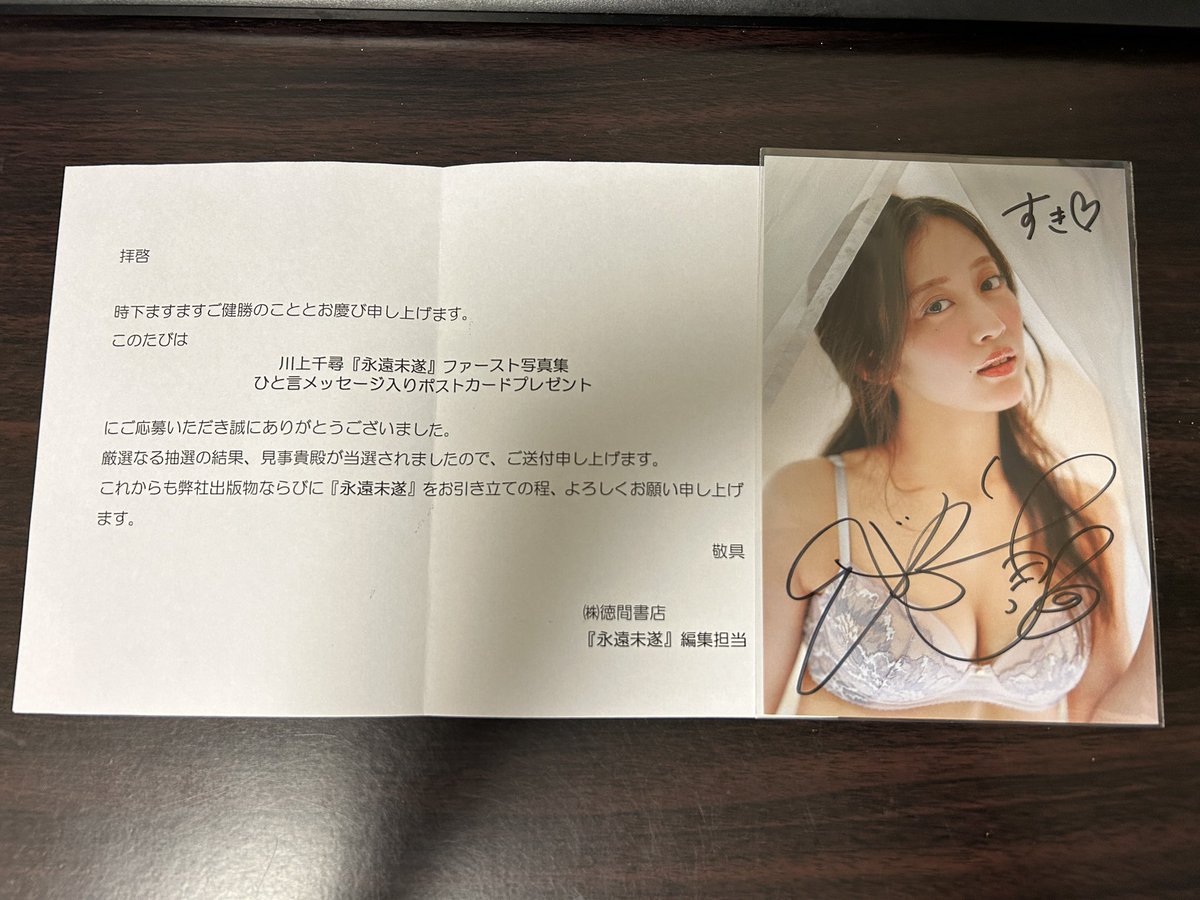 拝啓
時下ますますご健勝のこととお慶び申し上げます。
このたびは
川上千尋『永遠未遂』ファースト写真集
ひと言メッセージ入りポストカードプレゼント
にご応募いただき誠にありがとうございました。
厳選なる抽選の結果、見事貴殿が当選されましたので、ご送付申し上げます。
これからも弊社出版物ならびに『永遠未遂』をお引き立ての程、よろしくお願い申し上げ
ます。
敬具
㈱徳間書店
『永遠未遂』編集担当
すき♡